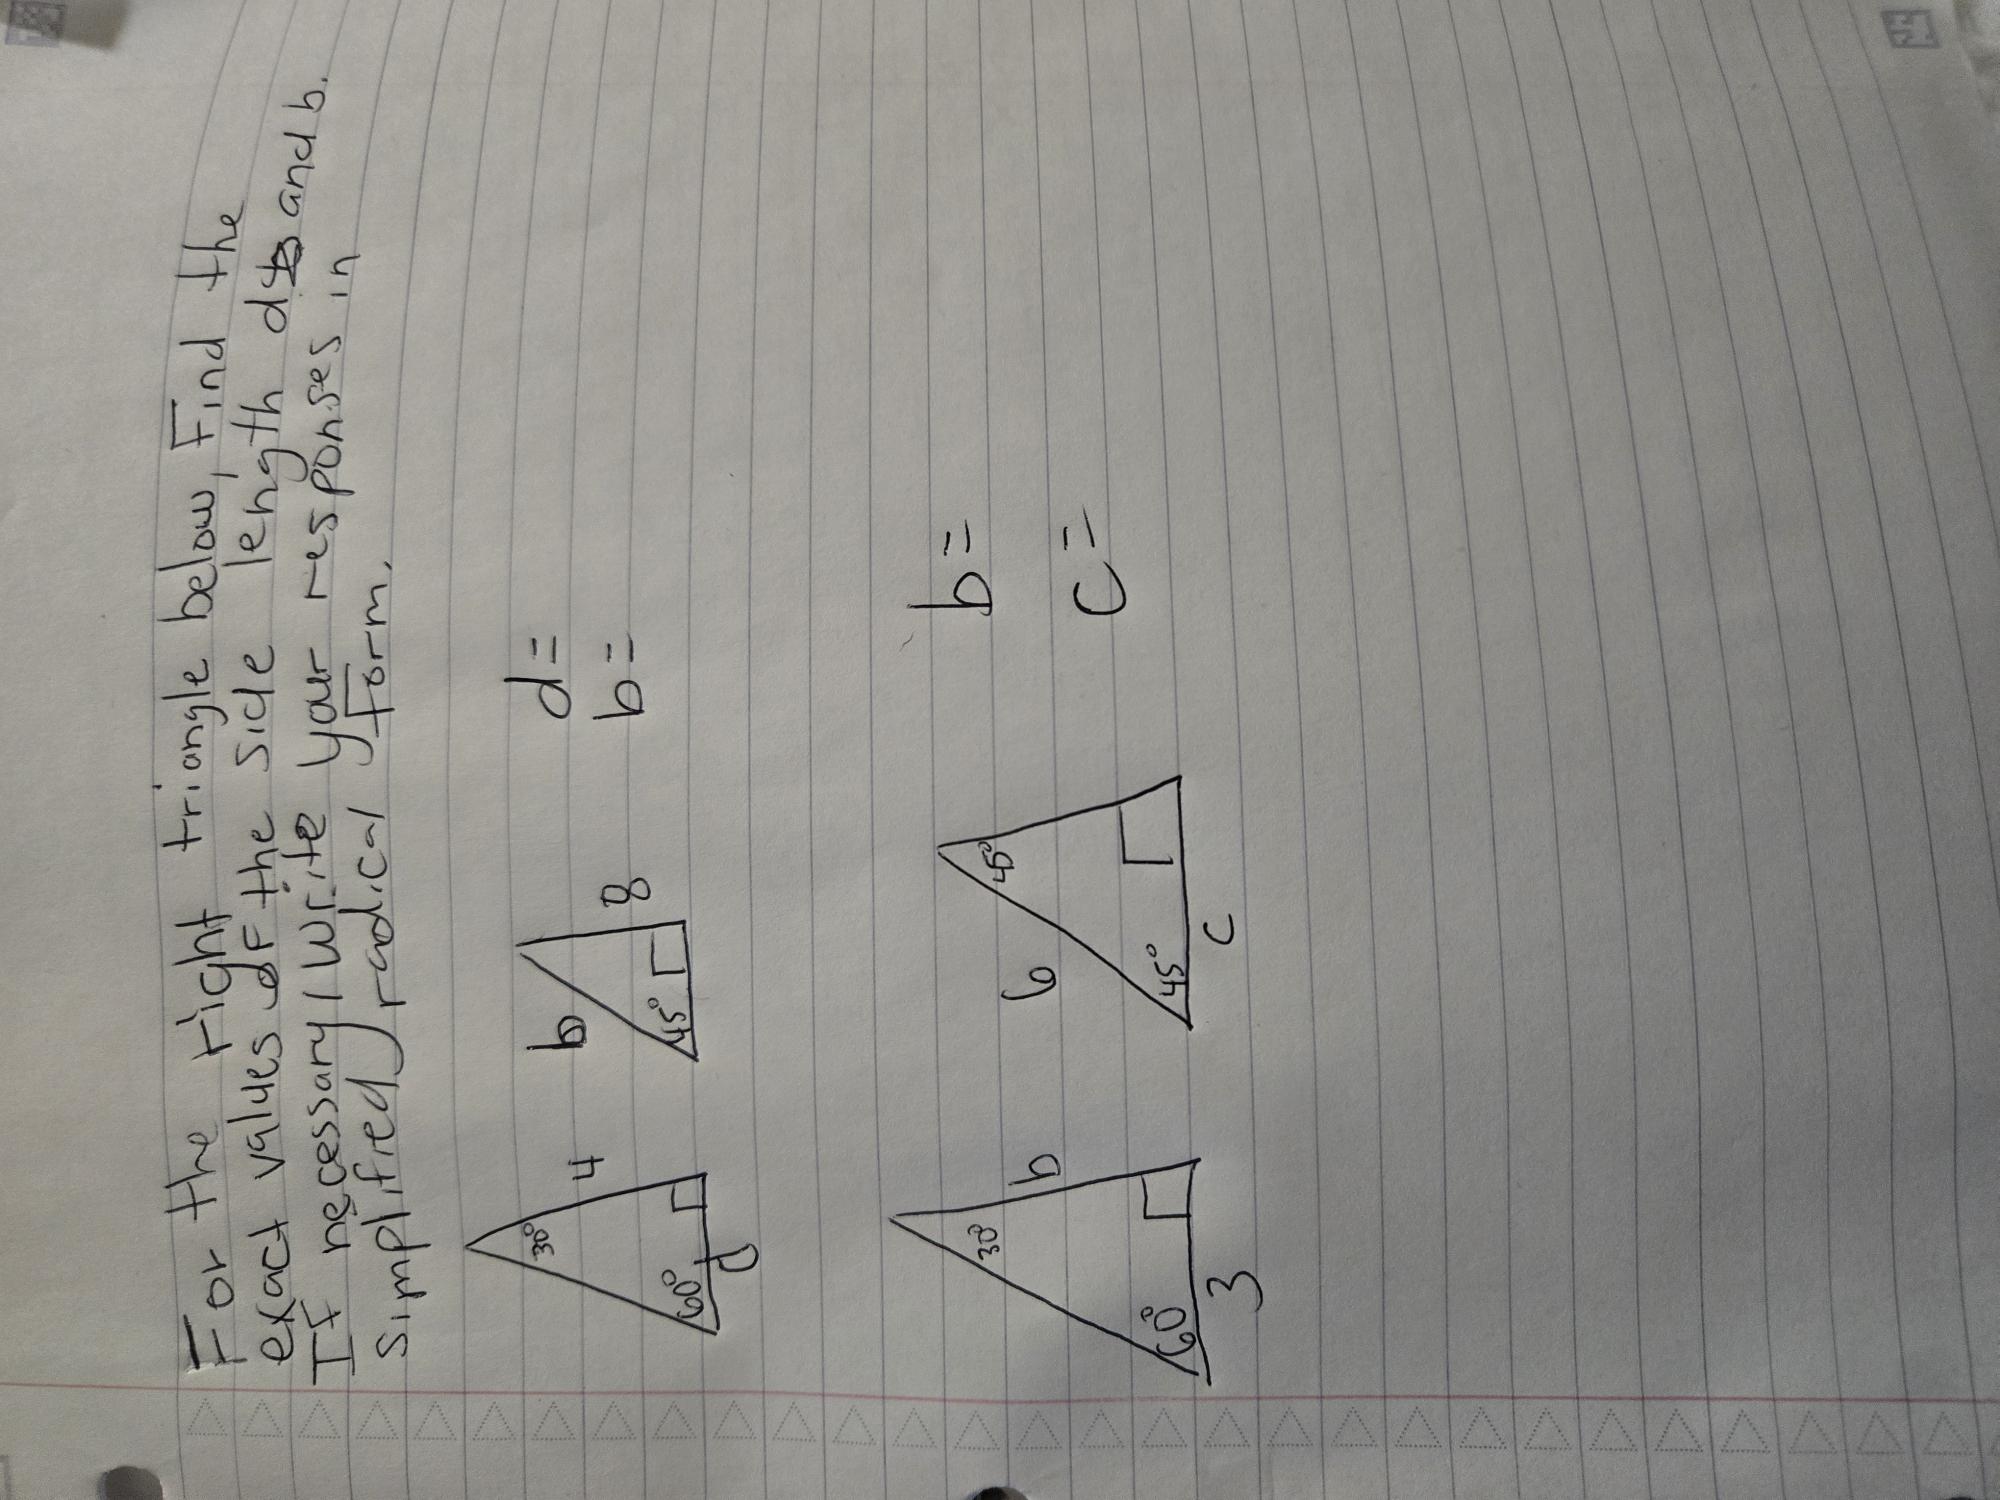 For the right triangle below, Find the
exact values of the side length d and b.
If necessary, write your responses in
simplified radical form.
30°
4
60°
d
b
8
45°
d=
b=
30°
b
60°
3
45°
6
45°
c
b=
c=